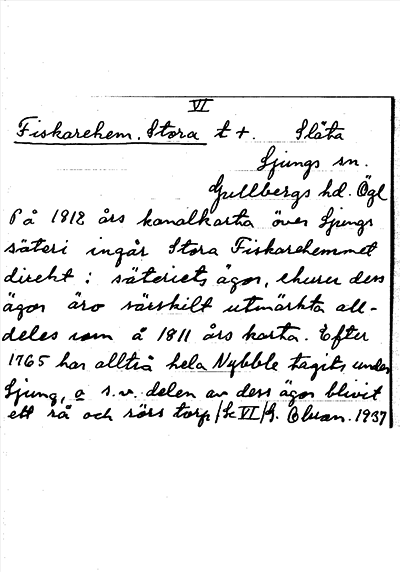 VI
Fiskarehem. Stora t +. Slåta
Ljungs sn.
Gullbergs hd. Ögl
På 1812 års kanalkarta över Ljungs
säteri ingår Stora Fiskarehemmet
direkt i säteriets ägor, ehuru dess
ägor äro särskilt utmärkta all-
deles som å 1811 års karta. Efter
1765 har alltså hela Nybble tagits under
Ljung, o s.v. delen av dess ägor blivit
ett rå och rörs torp / Lc VI / G. Olsson. 1937